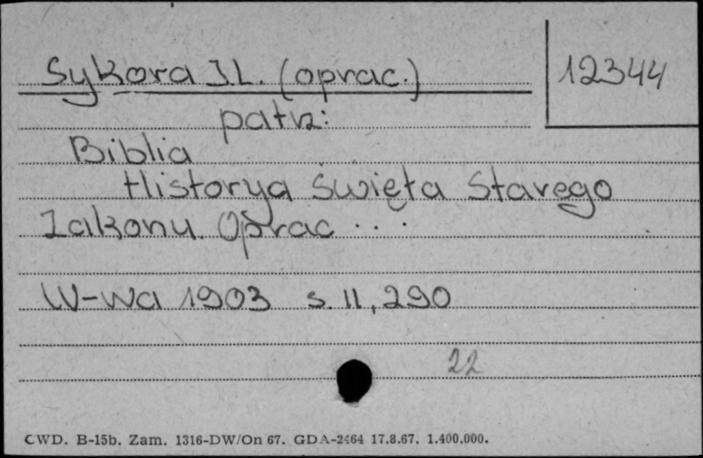 Sykora J.L. (oprac.)
12344
patrz:
Biblia
Historya święta Starego
Zakonu. Oprac...
W-wa 1903 s. II, 290
22
CWD. B-15b. Zam. 1316-DW/On 67. GDA-2464 17.8.67. 1.400.000.